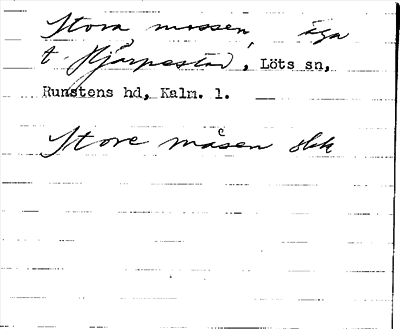 Stora mossen, äga
t Hjärpestad, Löts sn,
Runstens hd, Kalm. l.
Store måsen